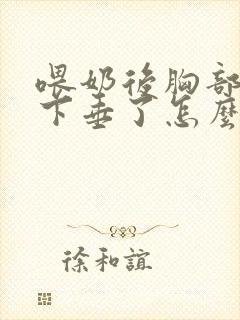 喂奶後胸部
下垂了怎麼
徐和誼